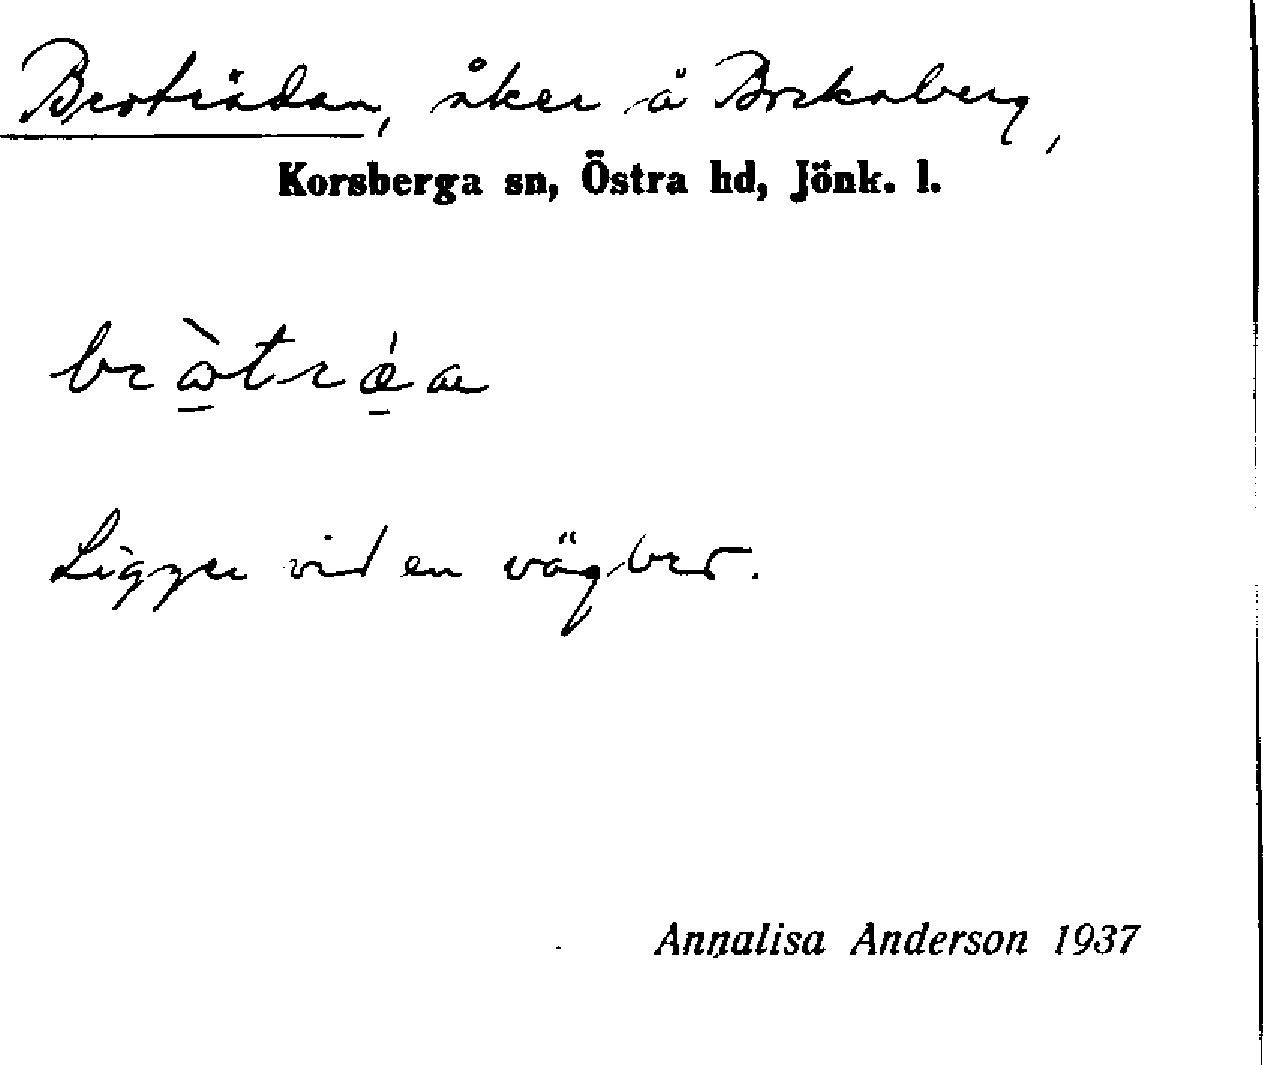 Broträdan, åker å Brokaberg,
Korsberga sn, Östra hd, Jönk. l.
Ligger vid en vägbro.
Annalisa Anderson 1937